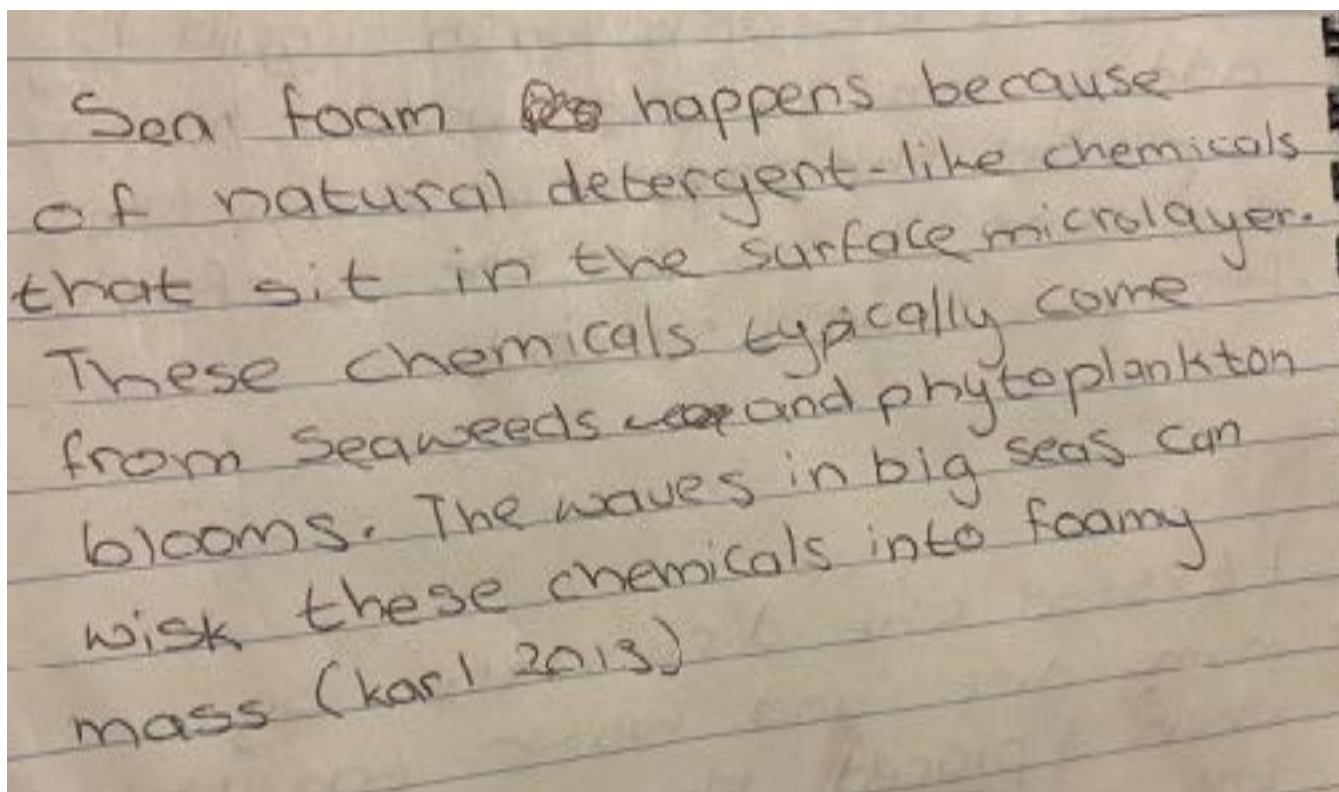 Sea foam happens because
of natural detergent-like chemicals
that sit in the surface microlayer.
These chemicals typically come
from seaweeds and phytoplankton
blooms. The waves in big seas can
wisk these chemicals into foamy
mass (karl 2013)